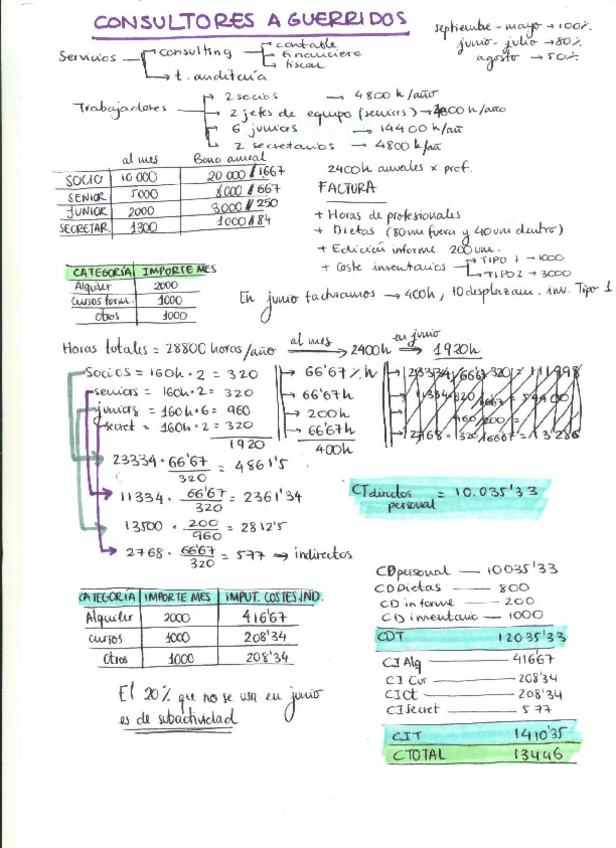 CONSULTORES AGUERRIDOS
septiembre - mayo → 100%
junio - julio → 80%
agosto → 50%
Servicios → consulting → contable
financiero
fiscal
→ t. auditoría
Trabajadores → 2 socios → 4800 h/año
→ 2 jefes de equipo (seniors) → 4800 h/año
→ 6 juniors → 14400 h/añ
→ 2 secretarios → 4800 h/añ
2400h anuales x prof.
al mes Bono anual
SOCIO 10 000 20 000 / 1667
SENIOR 5000 8000 / 667
JUNIOR 2000 3000 / 250
SECRETAR 1300 1000 / 84
FACTURA
+ Horas de profesionales
+ Dietas (80um fuera y 40um dentro)
+ Edición informe 200um.
+ Coste inventarios → TIPO 1 → 1000
→ TIPO 2 → 3000
CATEGORÍA IMPORTE MES
Alquiler 2000
Cursos form. 1000
Otros 1000
En junio facturamos → 400h, 10 desplazam. inv. Tipo 1
Horas totales = 28800 horas/año al mes → 2400h en junio ⇒ 1920h
Socios = 160h · 2 = 320 → 66'67 % h
seniors = 160h · 2 = 320 → 66'67h
juniors = 160h · 6 = 960 → 200h
secret = 160h · 2 = 320 → 66'67h
1920 400h
23334 · 66'67/320 = 4861'5
11334 · 66'67/320 = 2361'34
13500 · 200/960 = 2812'5
2768 · 66'67/320 = 577 → indirectos
CT directos personal = 10.035'33
CATEGORÍA IMPORTE MES IMPUT. COSTES IND.
Alquiler 2000 416'67
cursos 1000 208'34
Otros 1000 208'34
El 20% que no se usa en junio
es de subactividad
CD personal — 10035'33
CD Dietas — 800
CD informe — 200
CD inventario — 1000
CDT 12035'33
CI Alq — 416'67
CI Cur — 208'34
CI Ot — 208'34
CI Secret — 577
CIT 1410'35
CTOTAL 13446